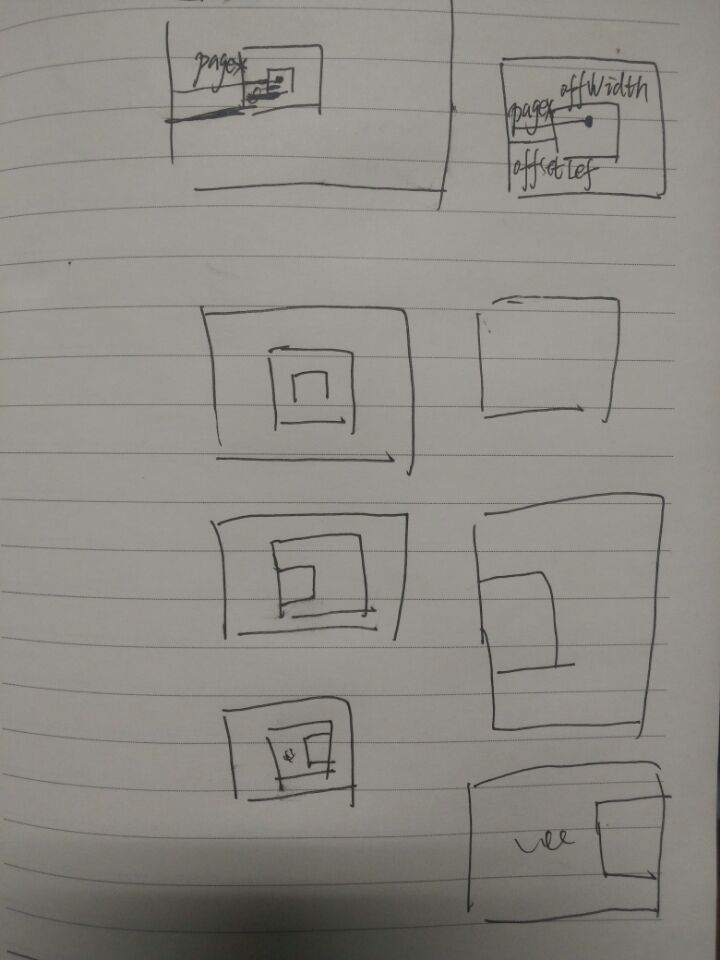 pagex
offWidth
pagex
offsetLef